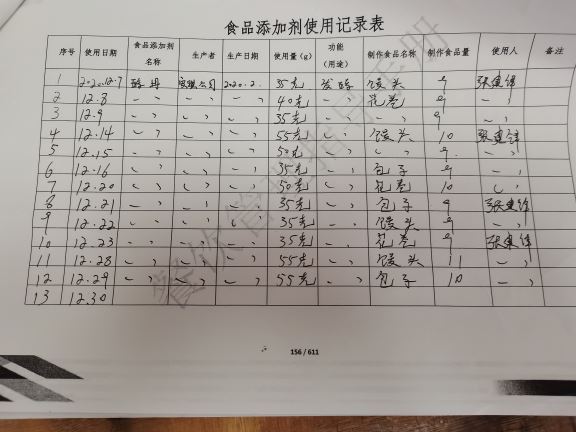 食品添加剂使用记录表
序号 使用日期 食品添加剂名称 生产者 生产日期 使用量(g) 功能(用途) 制作食品名称 制作食品量 使用人 备注
1 2020.12.7 酵母 公司 2020.2. 35克 发酵 馒头 9 张建
2 12.8 〃 〃 〃 40克 〃 花卷 9 〃
3 12.9 〃 〃 〃 35克 〃 〃 9 〃
4 12.14 〃 〃 〃 55克 〃 馒头 10 张建
5 12.15 〃 〃 〃 50克 〃 〃 9 〃
6 12.16 〃 〃 〃 35克 〃 包子 9 〃
7 12.20 〃 〃 〃 50克 〃 花卷 10 〃
8 12.21 〃 〃 〃 35克 〃 包子 9 张建
9 12.22 〃 〃 〃 35克 〃 馒头 9 〃
10 12.23 〃 〃 〃 35克 〃 花卷 9 张建
11 12.28 〃 〃 〃 55克 〃 馒头 11 〃
12 12.29 〃 〃 〃 55克 〃 包子 10 〃
13 12.30
156 / 611